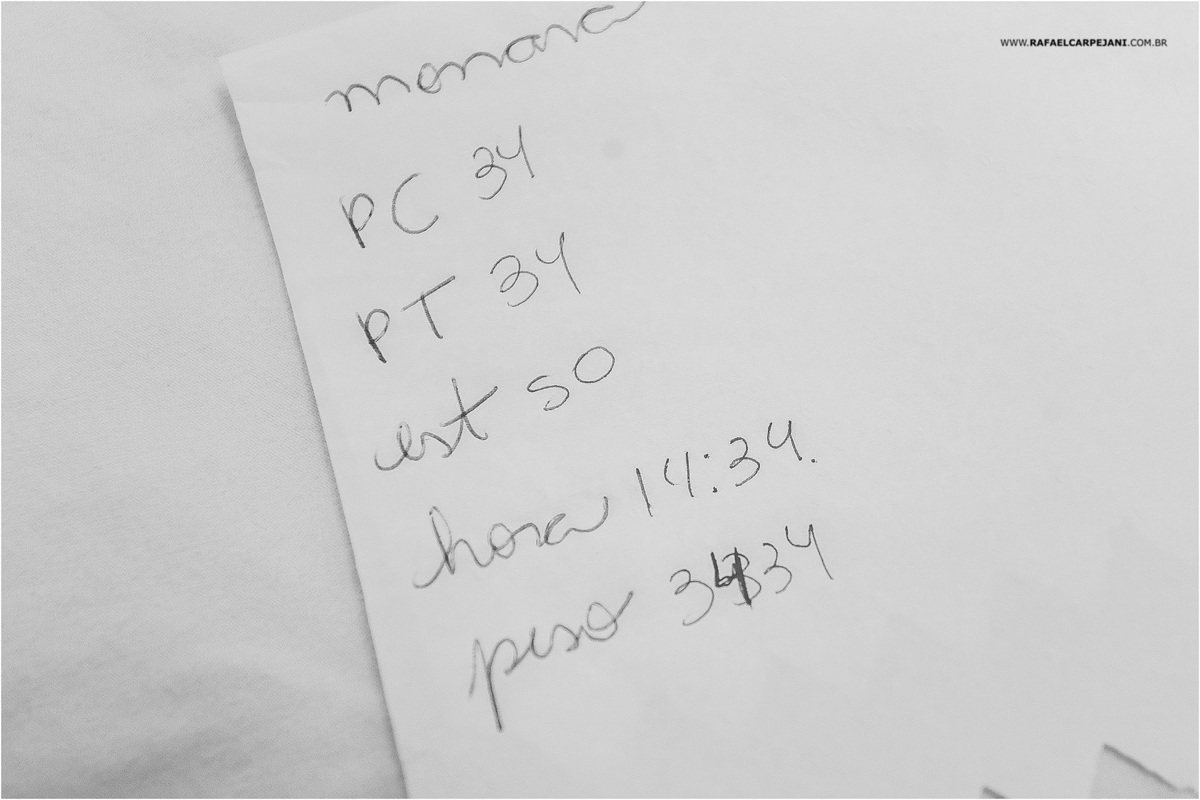 WWW.RAFAELCARPEJANI.COM.BR
PC 34
PT 34
est 50
hora 14:34.
peso 3434